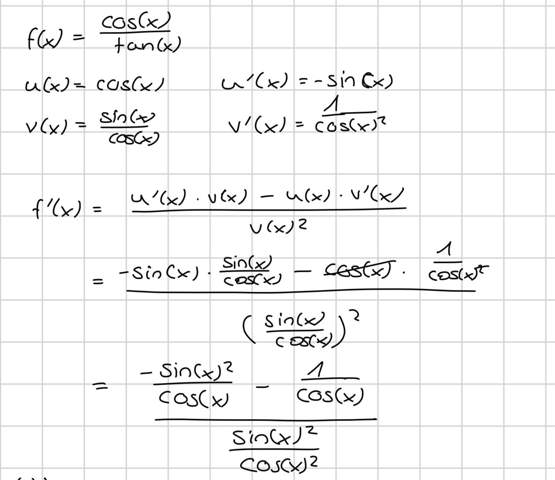 f(x) = cos(x) / tan(x)
u(x) = cos(x) u'(x) = -sin(x)
v(x) = sin(x) / cos(x) v'(x) = 1 / cos(x)²
f'(x) = (u'(x) · v(x) - u(x) · v'(x)) / v(x)²
= (-sin(x) · sin(x) / cos(x) - cos(x) · 1 / cos(x)²) / (sin(x) / cos(x))²
= (-sin(x)² / cos(x) - 1 / cos(x)) / (sin(x)² / cos(x)²)